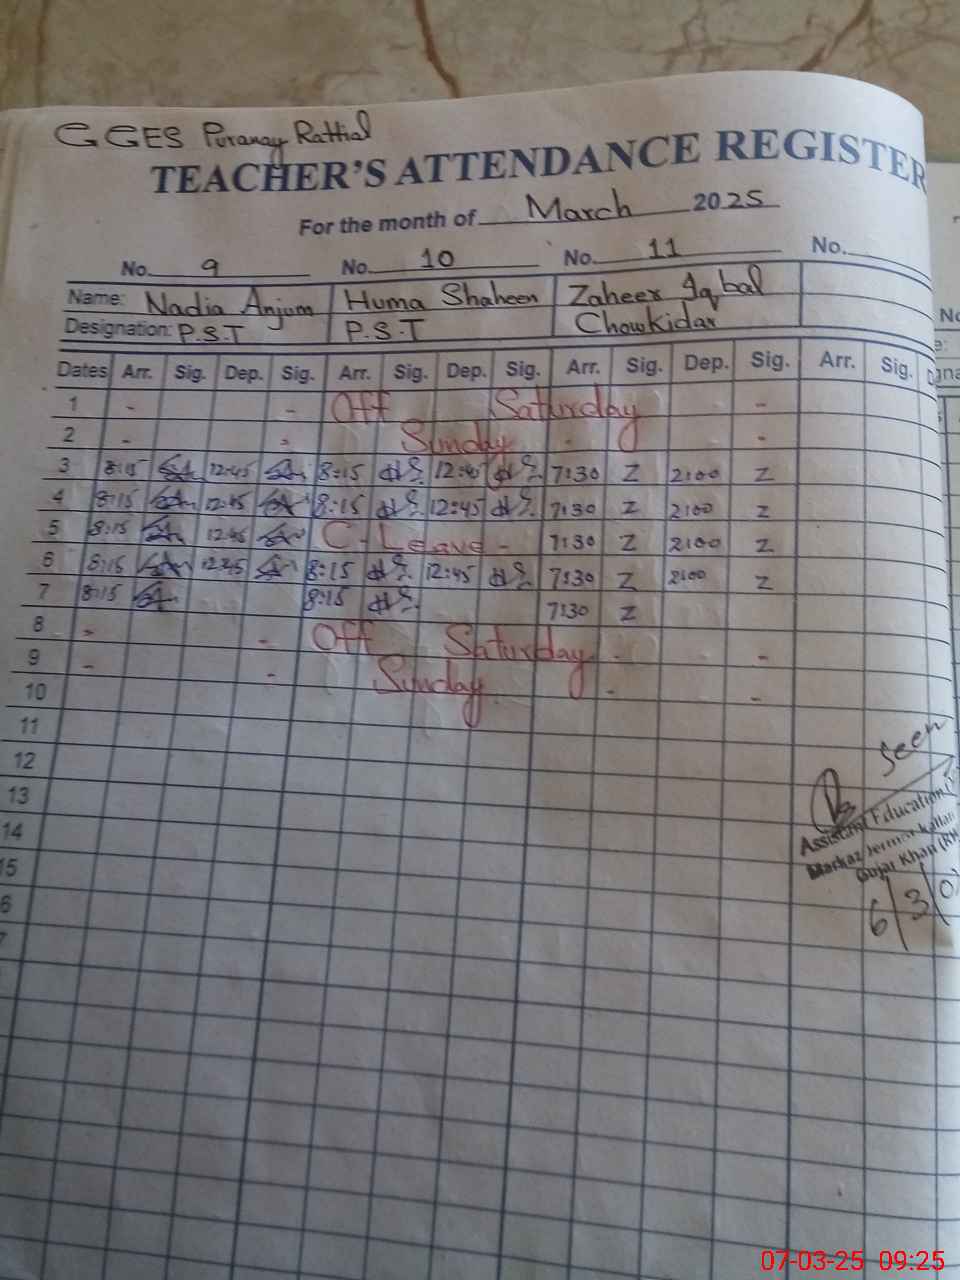 GGES Puranay Rattial
TEACHER'S ATTENDANCE REGISTER
For the month of March 2025
No. 9 No. 10 No. 11 No.
Name: Nadia Anjum Huma Shaheen Zaheer Iqbal
Designation: P.S.T P.S.T Chowkidar
Dates Arr. Sig. Dep. Sig. Arr. Sig. Dep. Sig. Arr. Sig. Dep. Sig. Arr. Sig.
1 - - Off Saturday - -
2 - - Sunday - -
3 8:15 12:45 8:15 12:45 7:30 Z 2:00 Z
4 8:15 12:45 8:15 12:45 7:30 Z 2:00 Z
5 8:15 12:45 C-Leave - 7:30 Z 2:00 Z
6 8:15 12:45 8:15 12:45 7:30 Z 2:00 Z
7 8:15 8:15 7:30 Z
8 - - Off Saturday - -
9 - - Sunday - -
10
11
12
13
14
15
6
7
Seen
Assistant Education
Markaz
Gujar Khan
6/3/0
07-03-25 09:25